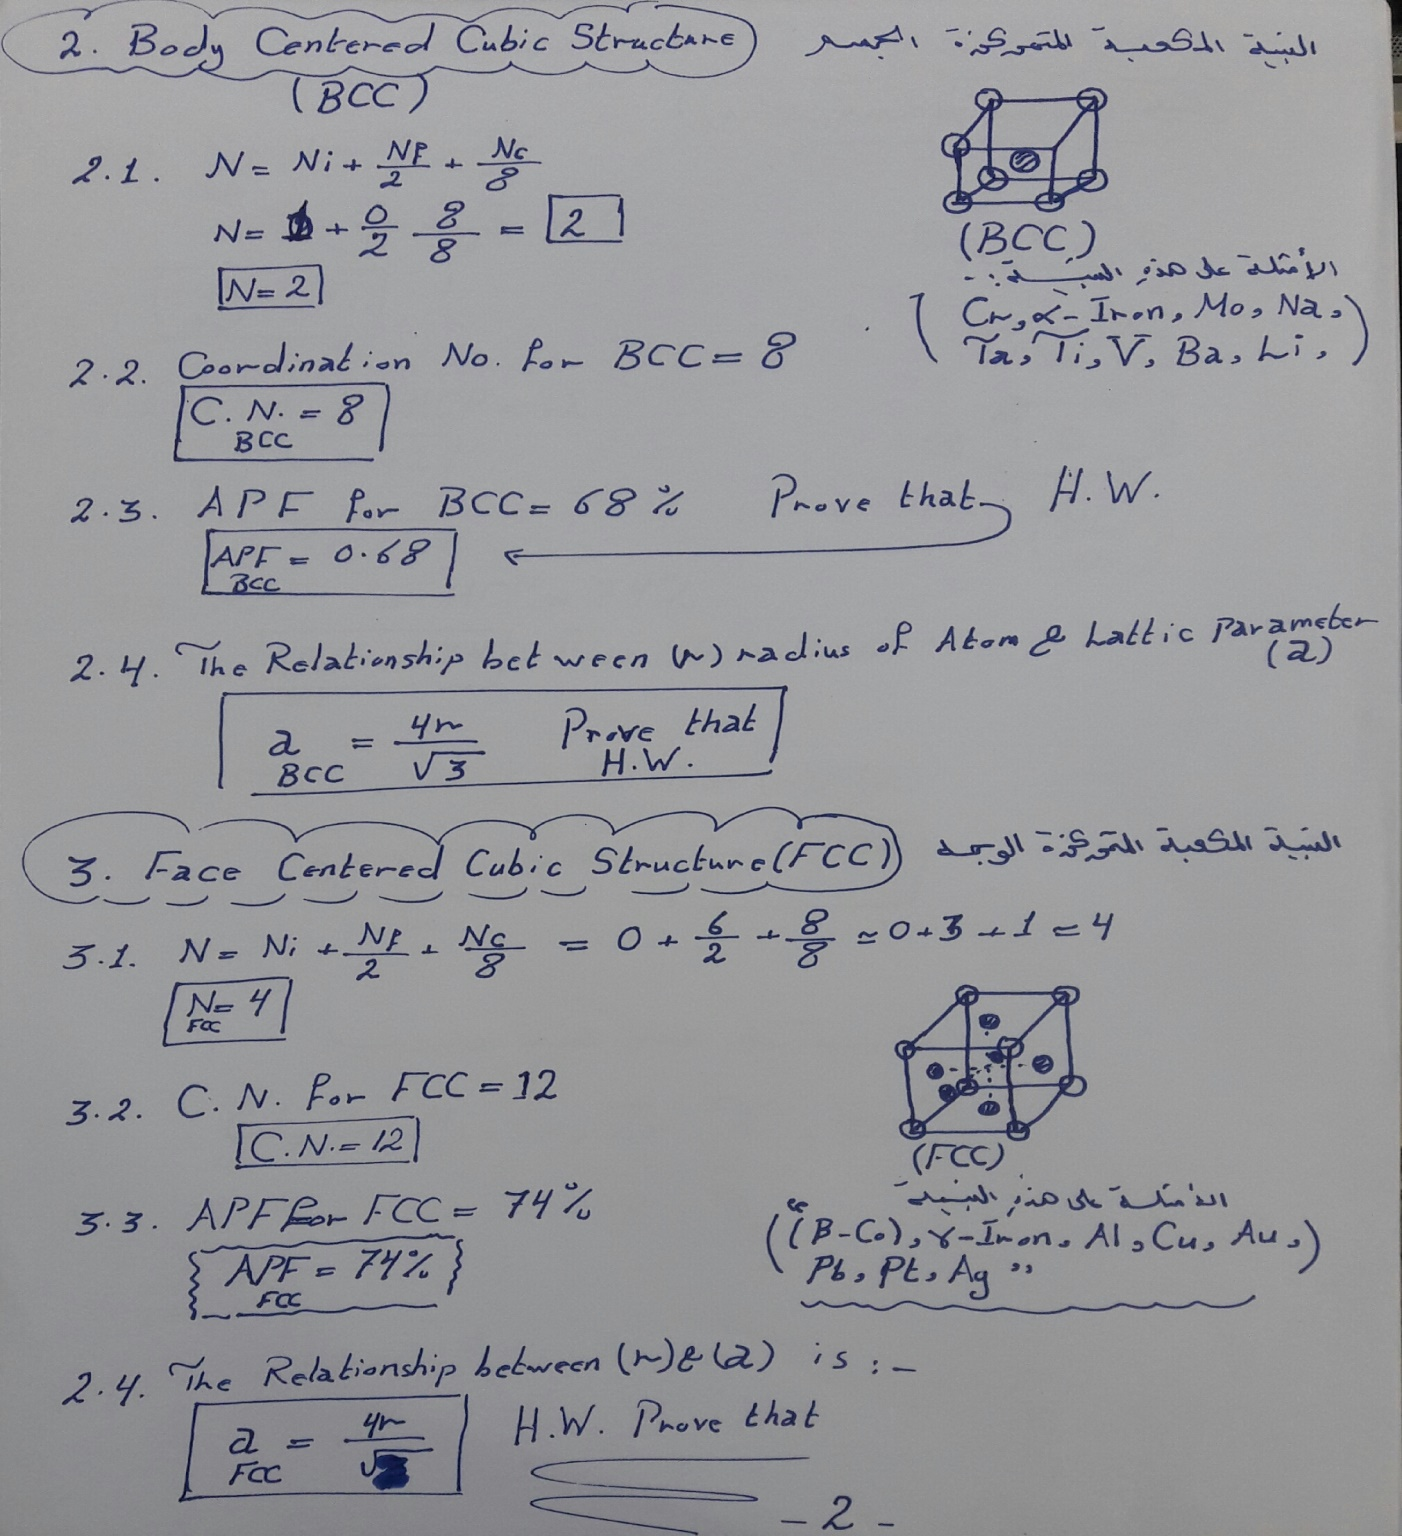 2. Body Centered Cubic Structure البنية المكعبة المتمركزة الجسم
(BCC)
2.1. N = Ni + Nf/2 + Nc/8
N = 1 + 0/2 8/8 = 2
N = 2
(BCC)
الأمثلة على هذه البنية :-
(Cr, α-Iron, Mo, Na,
Ta, Ti, V, Ba, Li,)
2.2. Coordination No. for BCC = 8
C.N. BCC = 8
2.3. APF for BCC = 68 % Prove that H.W.
APF BCC = 0.68
2.4. The Relationship between (r) radius of Atom & Lattic Parameter (a)
a BCC = 4r/√3 Prove that
H.W.
3. Face Centered Cubic Structure (FCC) البنية المكعبة المتمركزة الوجه
3.1. N = Ni + Nf/2 + Nc/8 = 0 + 6/2 + 8/8 = 0+3+1 = 4
N FCC = 4
3.2. C.N. for FCC = 12
C.N. = 12
(FCC)
الأمثلة على هذه البنية
((B-Co), γ-Iron, Al, Cu, Au,)
Pb, Pt, Ag ,,
3.3. APF for FCC = 74%
APF FCC = 74%
2.4. The Relationship between (r) & (a) is :-
a FCC = 4r/√ H.W. Prove that
- 2 -